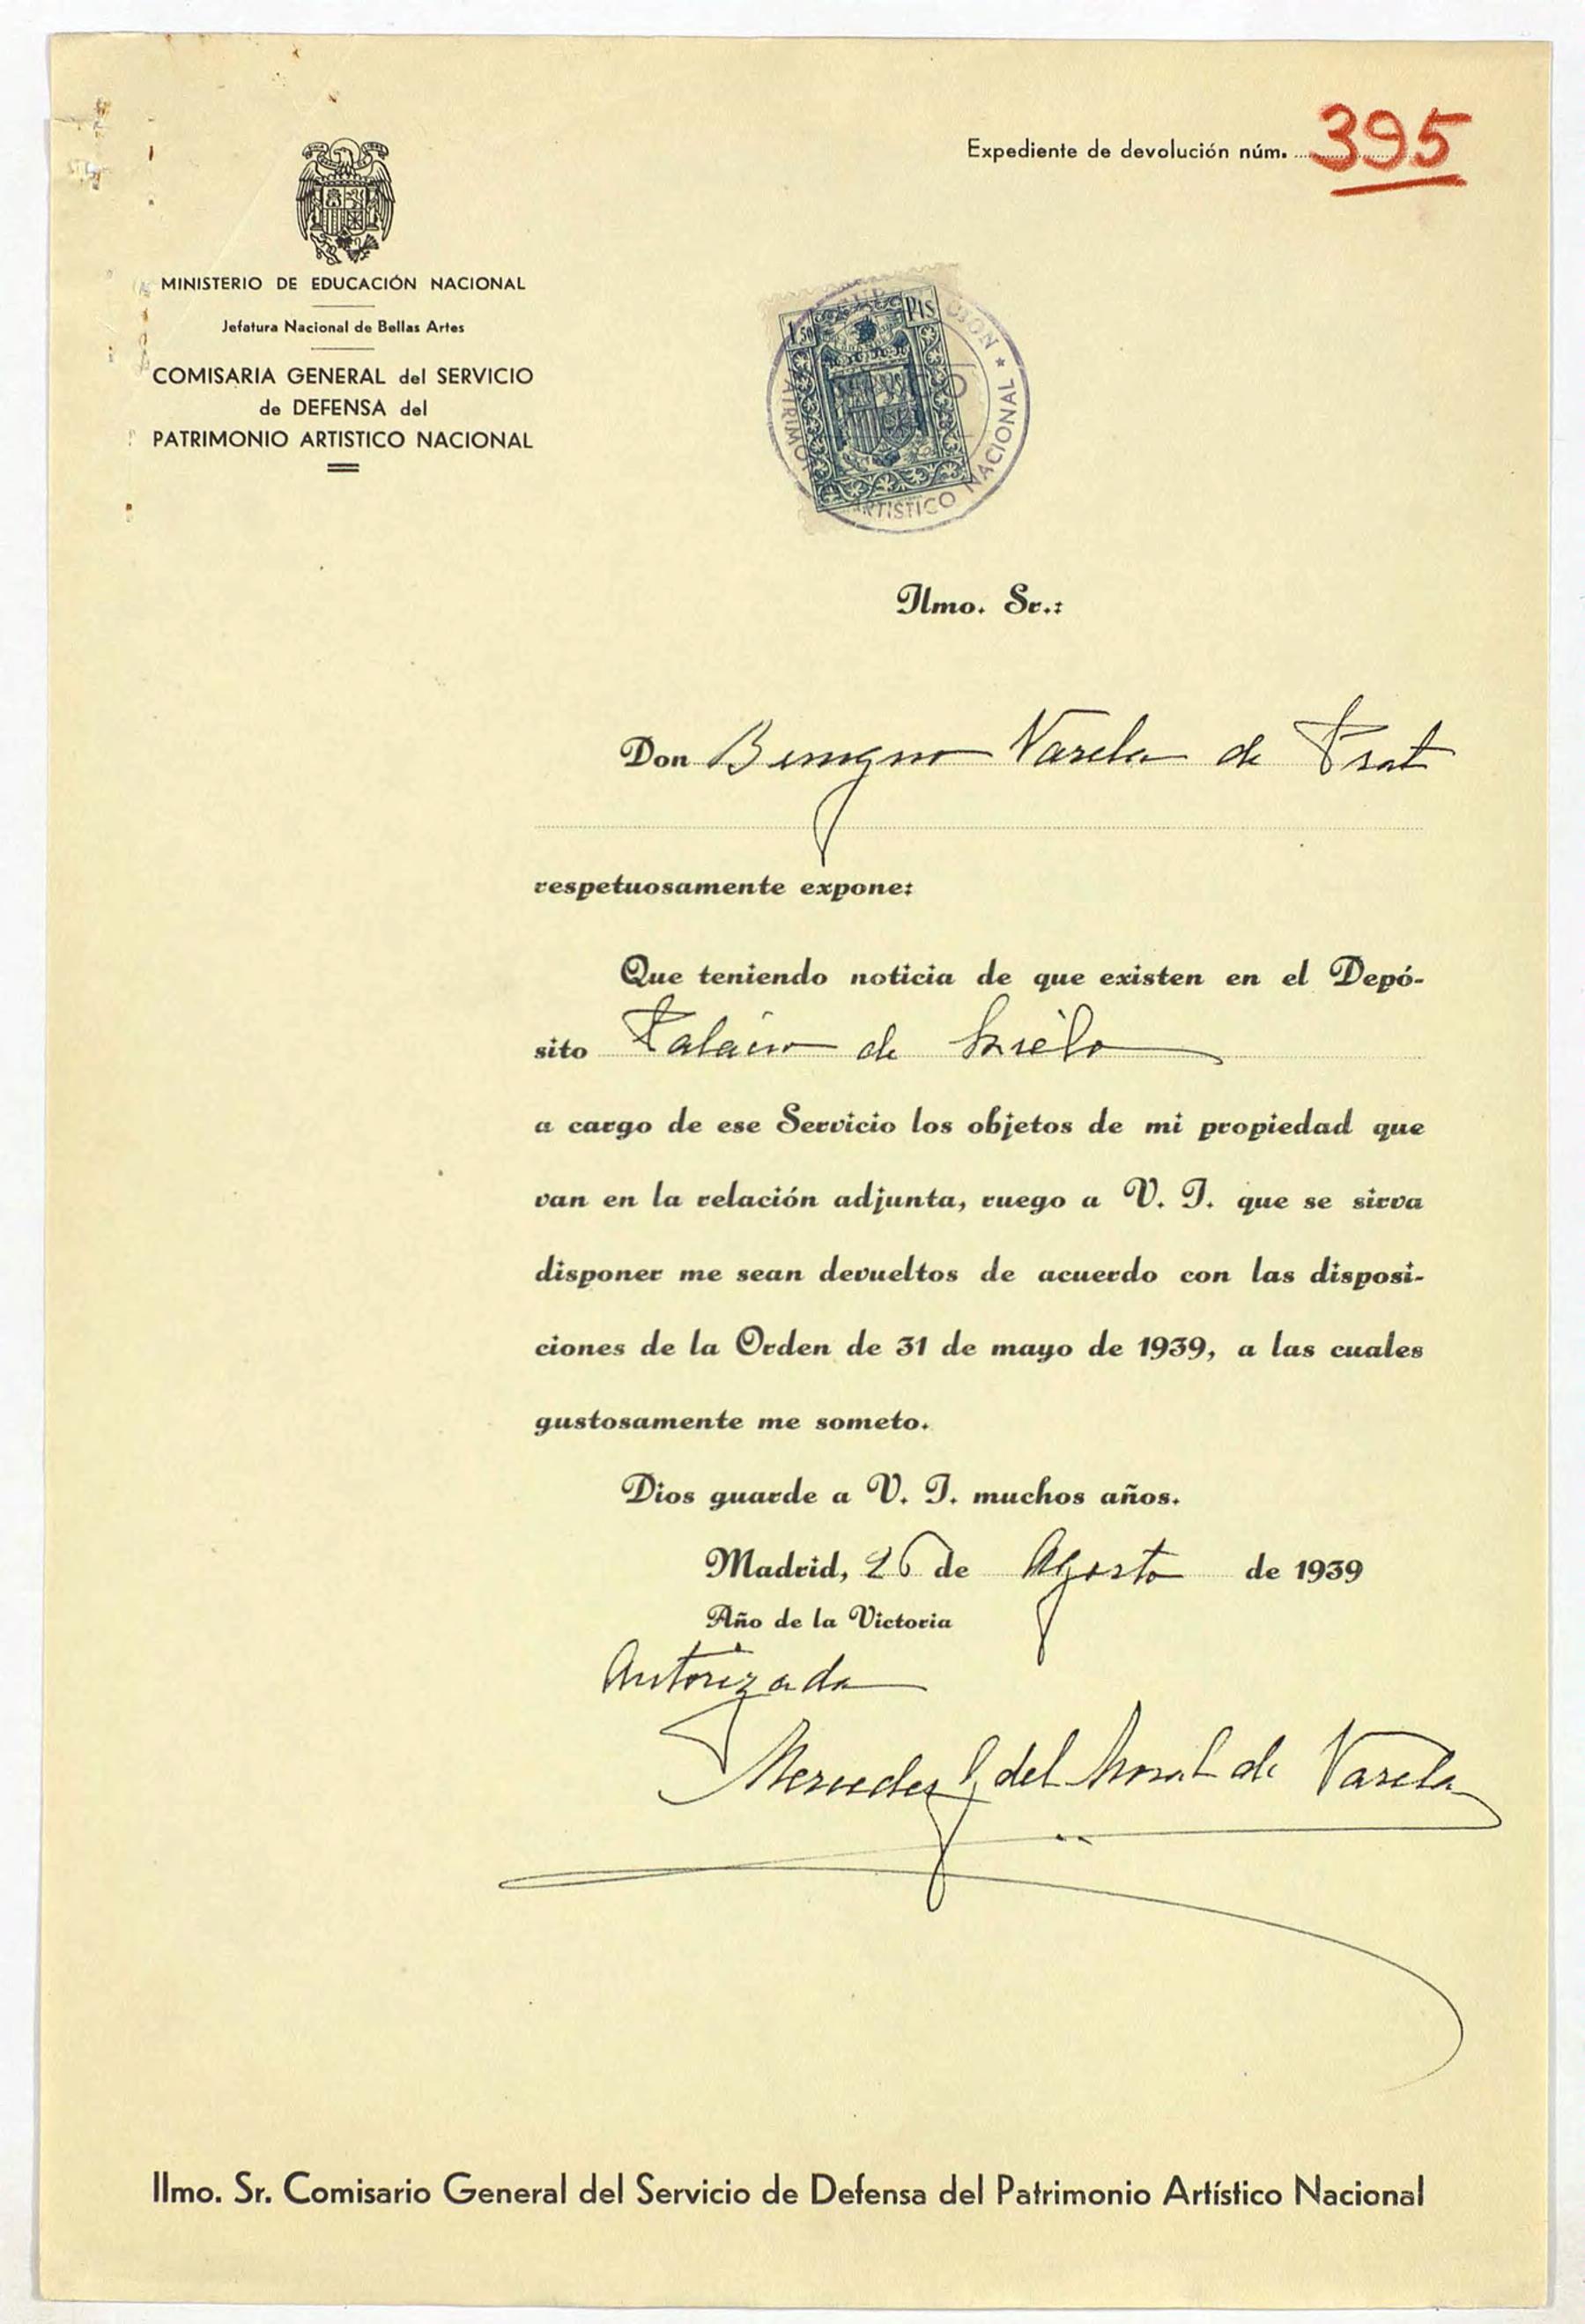 Expediente de devolución núm. 395
MINISTERIO DE EDUCACIÓN NACIONAL
Jefatura Nacional de Bellas Artes
COMISARIA GENERAL del SERVICIO
de DEFENSA del
PATRIMONIO ARTISTICO NACIONAL
1,50 PTS
ARTISTICO NACIONAL
Ilmo. Sr.:
Don Benigno Varela de Prat
respetuosamente expone:
Que teniendo noticia de que existen en el Depó-
sito Palacio de
a cargo de ese Servicio los objetos de mi propiedad que
van en la relación adjunta, ruego a V. I. que se sirva
disponer me sean devueltos de acuerdo con las disposi-
ciones de la Orden de 31 de mayo de 1939, a las cuales
gustosamente me someto.
Dios guarde a V. I. muchos años.
Madrid, 26 de Agosto de 1939
Año de la Victoria
Autorizada
Mercedes G. del Moral de Varela
Ilmo. Sr. Comisario General del Servicio de Defensa del Patrimonio Artístico Nacional